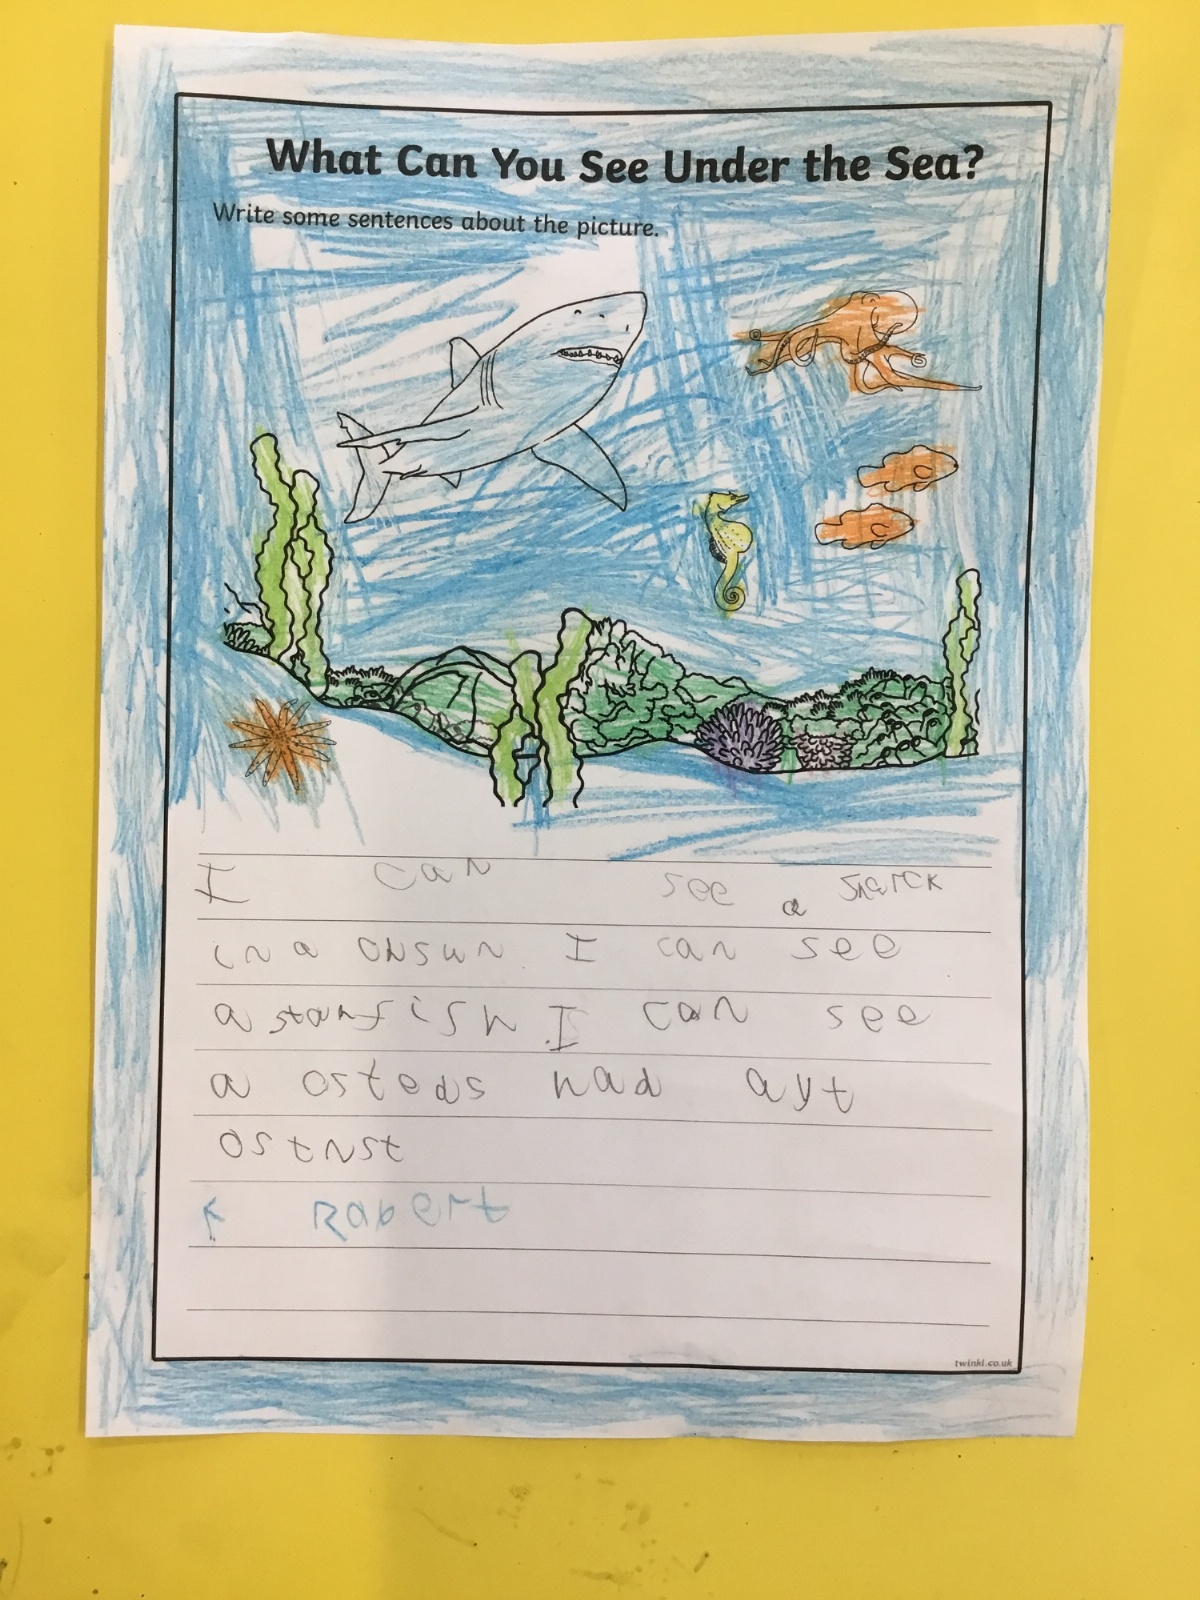 What Can You See Under the Sea?
Write some sentences about the picture.
I can see a Sharck
in a ohsun. I can see
a starfish. I can see
a osteds had ayt
ostnst
Rabert
twinkl.co.uk